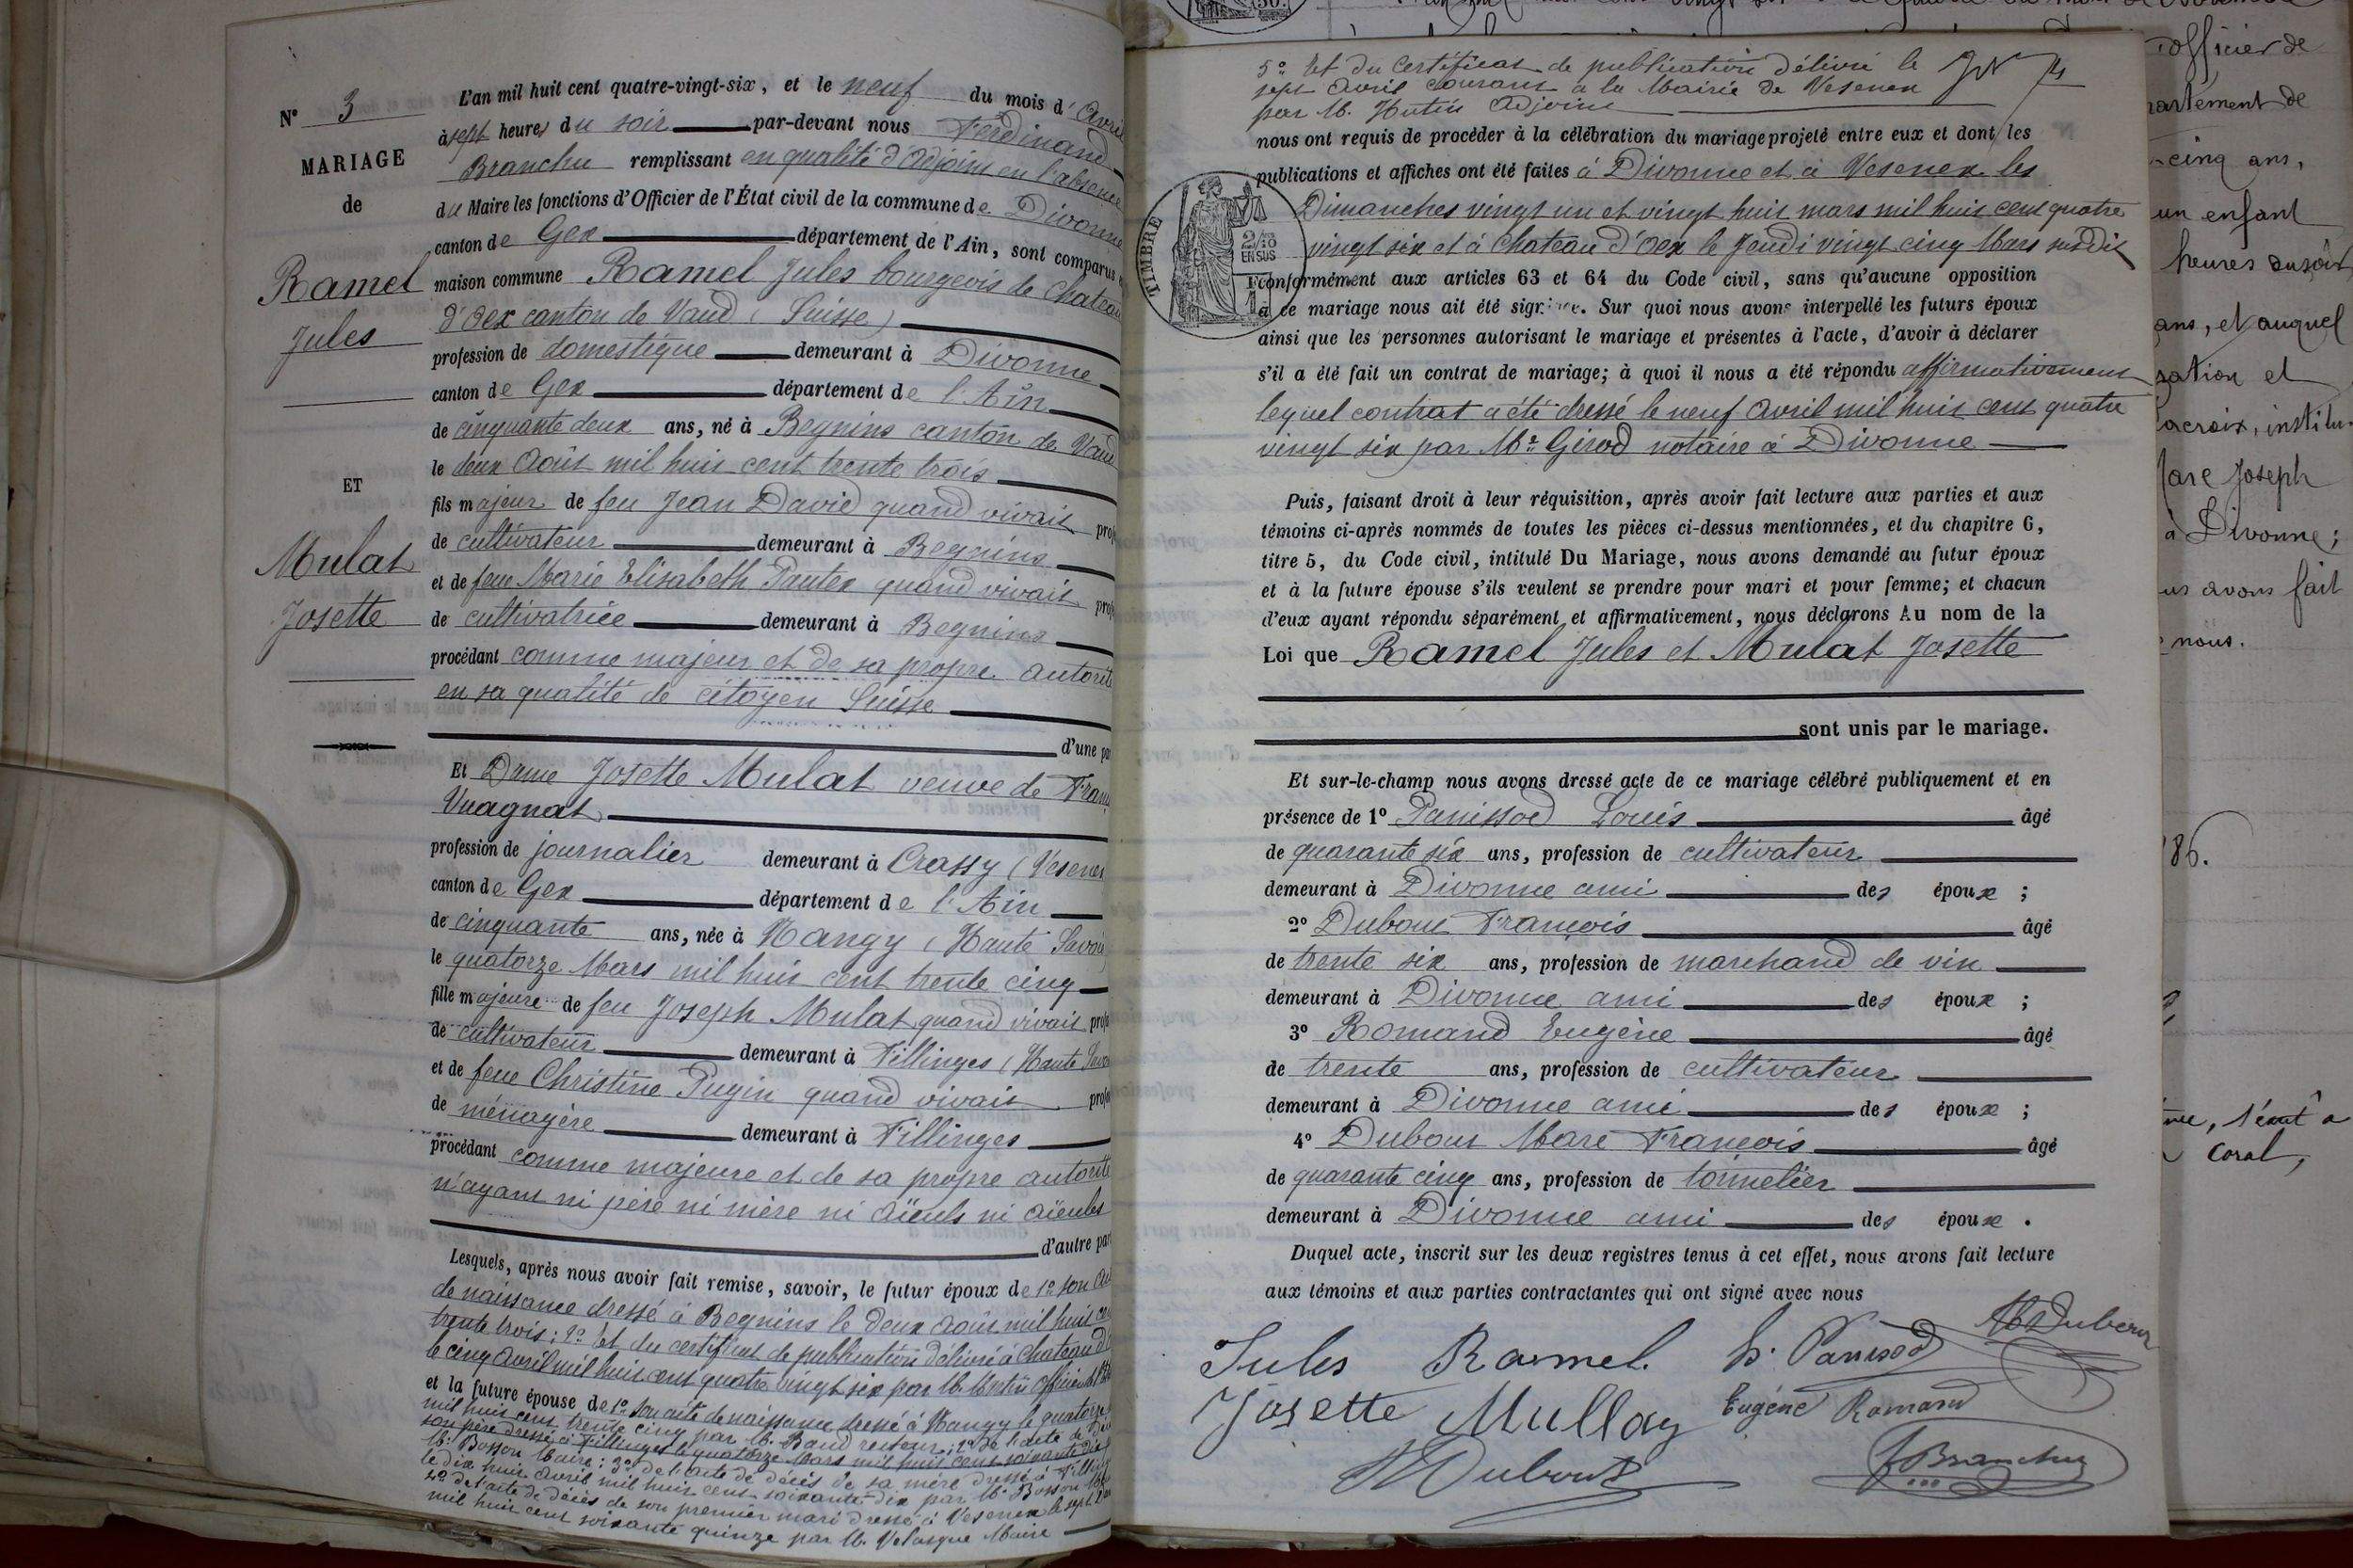 N° 3
MARIAGE
de
Ramel
Jules
ET
Mulat
Josette
L'an mil huit cent quatre-vingt-six, et le neuf du mois d'Avril
à sept heures du soir par-devant nous Ferdinand
Branchu remplissant en qualité d'Adjoint en l'absence
du Maire les fonctions d'Officier de l'État civil de la commune de Divonne
canton de Gex département de l'Ain, sont comparus
maison commune Ramel Jules bourgeois de Chateau
d'Oex canton de Vaud (Suisse)
profession de domestique demeurant à Divonne
canton de Gex département de l'Ain
de cinquante deux ans, né à Begnins canton de Vaud
le deux Août mil huit cent trente trois
fils majeur de feu Jean David quand vivait prof
de cultivateur demeurant à Begnins
et de feue Marie Elisabeth Pautex quand vivait prof
de cultivatrice demeurant à Begnins
procédant comme majeur et de sa propre autorité
en sa qualité de citoyen Suisse
d'une pa
Et Dme Josette Mulat veuve de Fran
Vuagnat
profession de journalier demeurant à Crassy (Vesenex
canton de Gex département de l'Ain
de cinquante ans, née à Nangy (Haute Savoie
le quatorze Mars mil huit cent trente cinq
fille majeure de feu Joseph Mulat quand vivait prof
de cultivateur demeurant à Fillinges (Haute Savo
et de feue Christine Pugin quand vivait prof
de ménagère demeurant à Fillinges
procédant comme majeure et de sa propre autorité
n'ayant ni père ni mère ni aïeuls ni aïeules
d'autre par
Lesquels, après nous avoir fait remise, savoir, le futur époux de 1° son
de naissance dressé à Begnins le deux Août mil huit cen
trente trois; 2° Et du certificat de publication délivré à Chateau d'
le cinq Avril mil huit cent quatre vingt six par M.
et la future épouse de 1° son acte de naissance dressé à Nangy le quatorze
mil huit cent trente cinq par M. Baud recteur; 2° de l'acte de
son père dressé à Fillinges le quatorze Mars mil huit cent soixante dix
M. Bosson Maire; 3° de l'acte de décès de sa mère dressé à Filling
le dix huit Avril mil huit cent soixante dix par M. Bosson
4° de l'acte de décès de son premier mari dressé à Vesenex le sept
mil huit cent soixante quinze par M. Maire
5° Et du certificat de publication délivré le
sept Avril courant à la Mairie de Vesenex
par M. Hutin Adjoint
nous ont requis de procéder à la célébration du mariage projeté entre eux et dont les
publications et affiches ont été faites à Divonne et à Vesenex les
Dimanches vingt un et vingt huit mars mil huit cent quatre
vingt six et à Chateau d'Oex le Jeudi vingt cinq Mars susdit
conformément aux articles 63 et 64 du Code civil, sans qu'aucune opposition
à ce mariage nous ait été signifiée. Sur quoi nous avons interpellé les futurs époux
ainsi que les personnes autorisant le mariage et présentes à l'acte, d'avoir à déclarer
s'il a été fait un contrat de mariage; à quoi il nous a été répondu affirmativement
lequel contrat a été dressé le neuf Avril mil huit cent quatre
vingt six par Me Girod notaire à Divonne
Puis, faisant droit à leur réquisition, après avoir fait lecture aux parties et aux
témoins ci-après nommés de toutes les pièces ci-dessus mentionnées, et du chapitre 6,
titre 5, du Code civil, intitulé Du Mariage, nous avons demandé au futur époux
et à la future épouse s'ils veulent se prendre pour mari et pour femme; et chacun
d'eux ayant répondu séparément et affirmativement, nous déclarons Au nom de la
Loi que Ramel Jules et Mulat Josette
sont unis par le mariage.
Et sur-le-champ nous avons dressé acte de ce mariage célébré publiquement et en
présence de 1° Panissod Louis âgé
de quarante six ans, profession de cultivateur
demeurant à Divonne ami des époux ;
2° Dubout François âgé
de trente six ans, profession de marchand de vin
demeurant à Divonne ami des époux ;
3° Romand Eugène âgé
de trente ans, profession de cultivateur
demeurant à Divonne ami des époux ;
4° Dubout Marc François âgé
de quarante cinq ans, profession de tonnelier
demeurant à Divonne ami des époux .
Duquel acte, inscrit sur les deux registres tenus à cet effet, nous avons fait lecture
aux témoins et aux parties contractantes qui ont signé avec nous
Jules Ramel L. Panissod
Josette Mullay Eugène Romand
Dubout FBranchu
TIMBRE
officier de
cinq ans,
un enfant
heures du soir
ans, et auquel
et
acroix, institu-
Marc Joseph
à Divonne;
avons fait
nous.
86.
Coral,